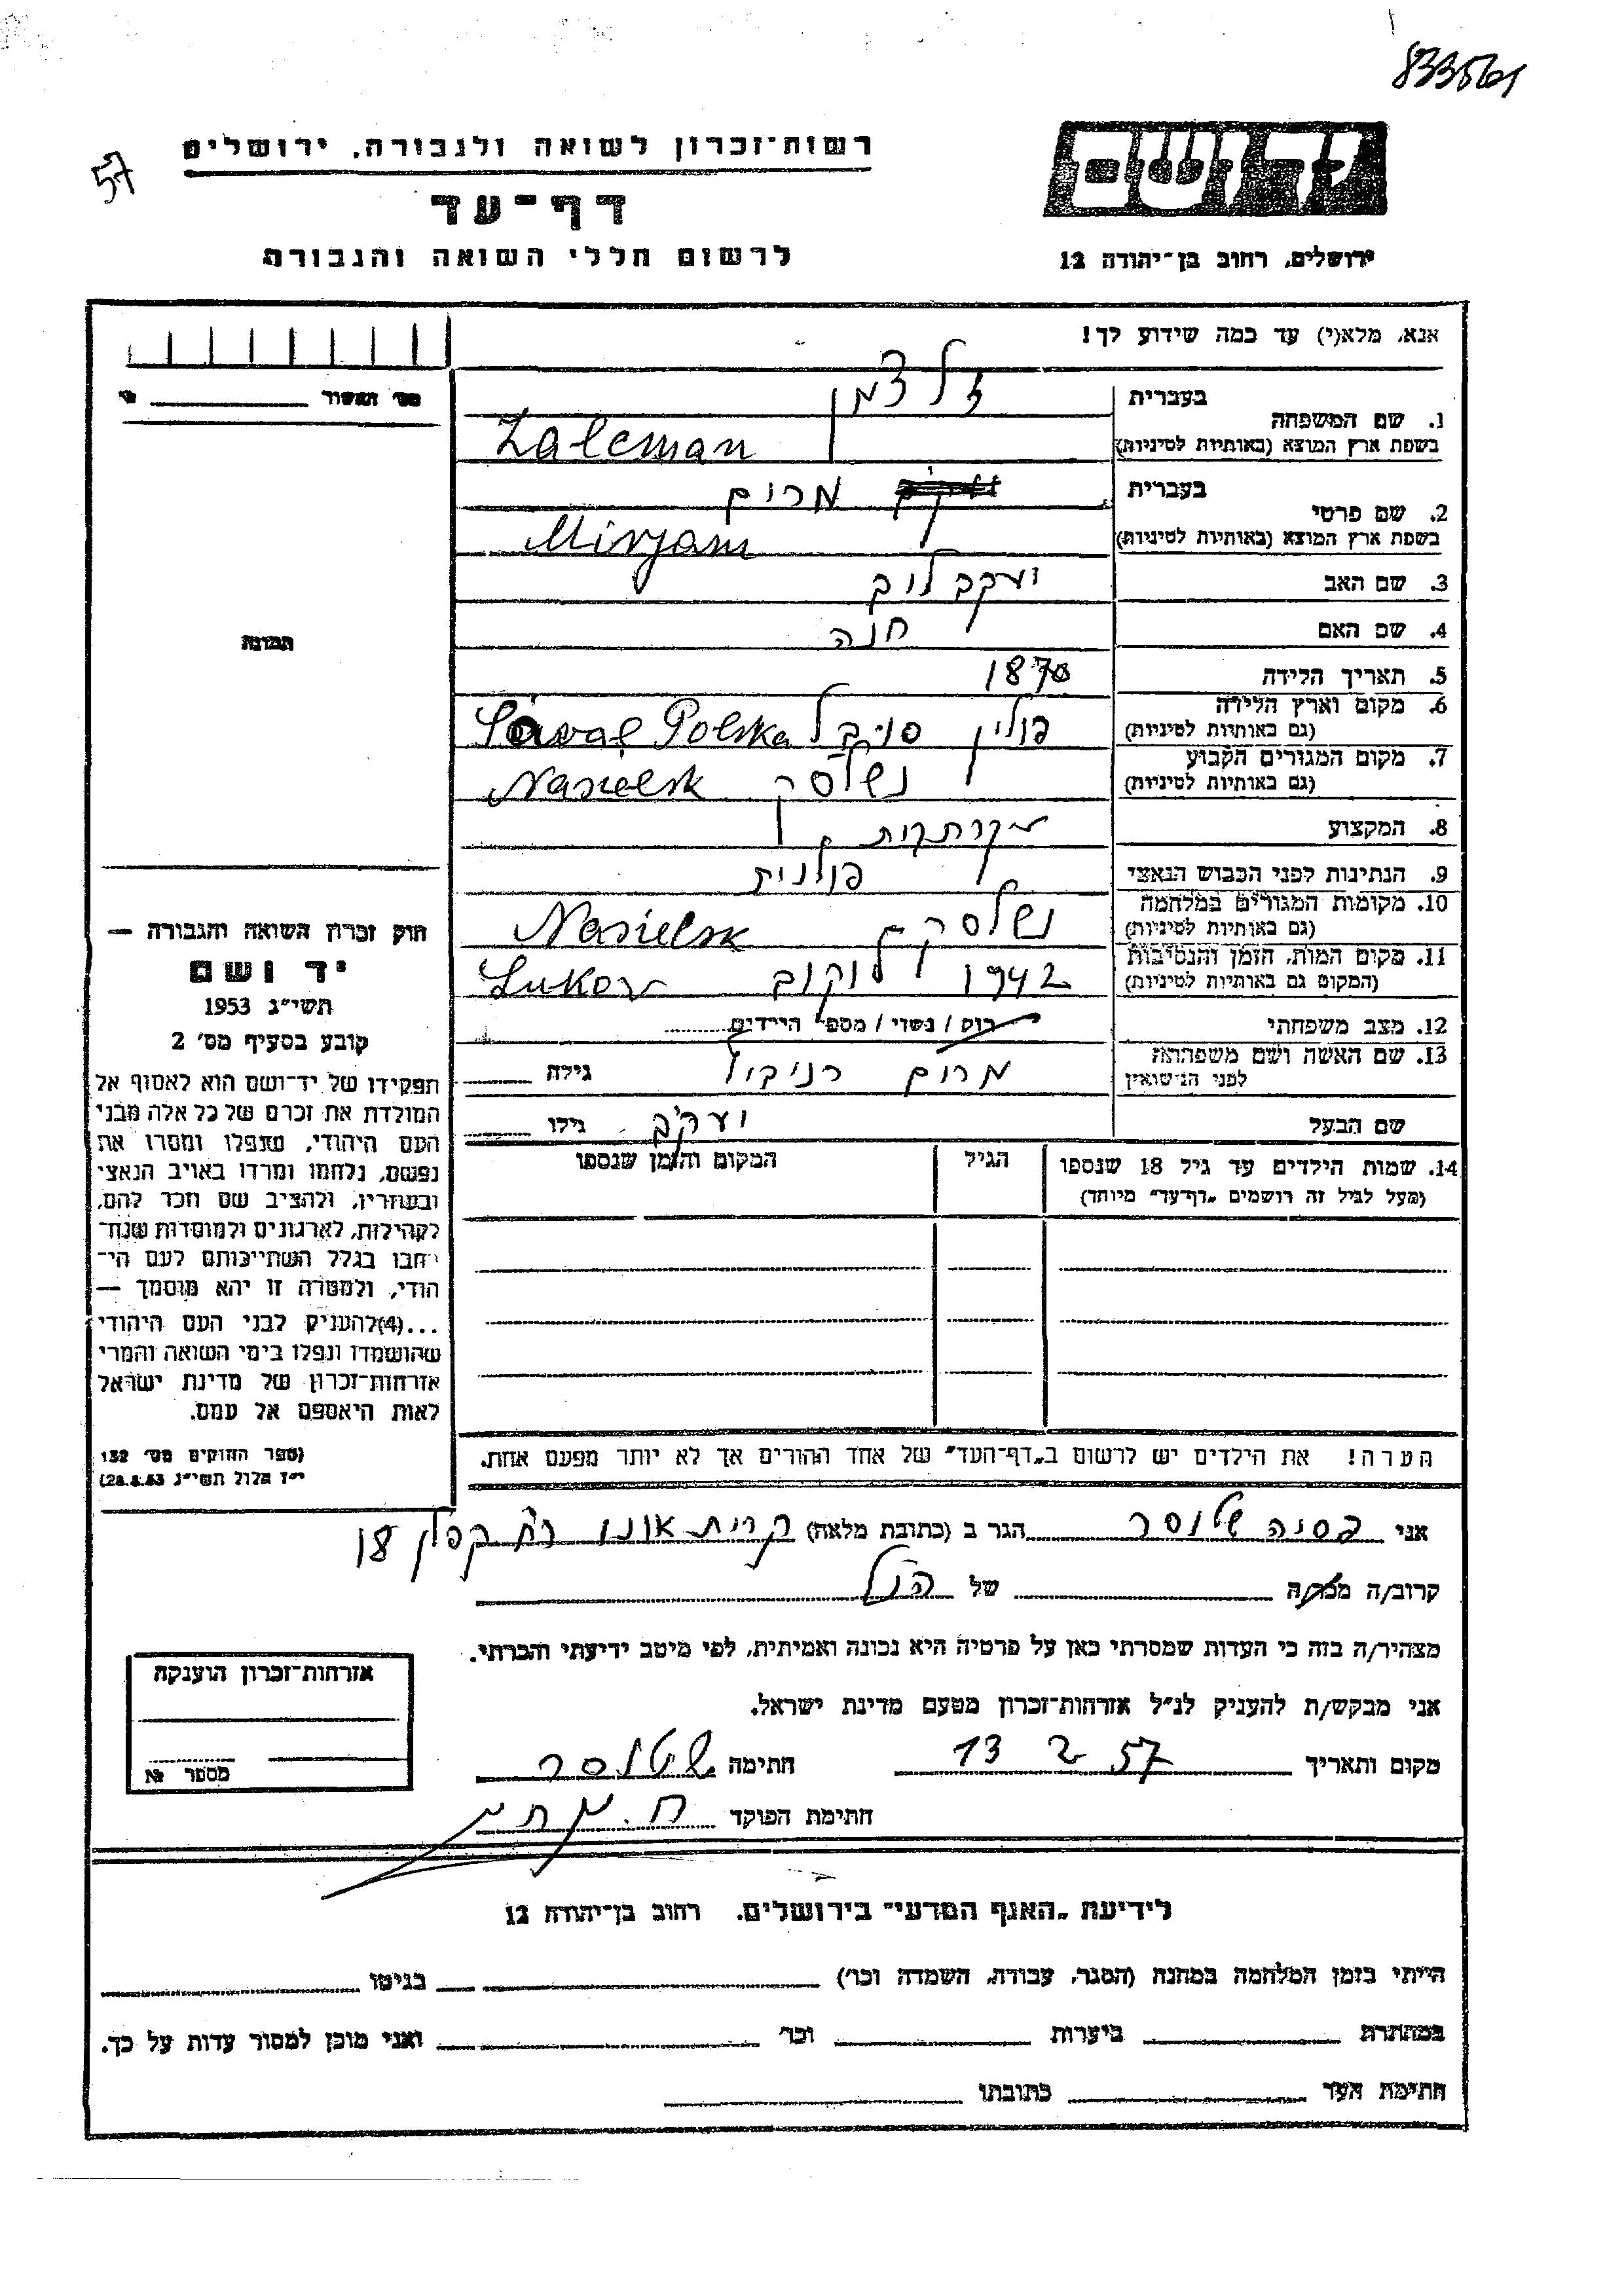 833561
57
יד ושם
רשות־זכרון לשואה ולגבורה, ירושלים
דף־עד
לרשום חללי השואה והגבורה
ירושלים, רחוב בן־יהודה 12
אנא, מלא(י) עד כמה שידוע לך!
מס׳ האשור
1. שם המשפחה
בעברית
זלצמן
בשפת ארץ המוצא (באותיות לטיניות)
Zalcman
2. שם פרטי
בעברית
מרים
בשפת ארץ המוצא (באותיות לטיניות)
Mirjam
3. שם האב
יעקב לוב
4. שם האם
חנה
5. תאריך הלידה
1870
6. מקום וארץ הלידה
(גם באותיות לטיניות)
פולין
Polska
7. מקום המגורים הקבוע
(גם באותיות לטיניות)
נשלסק Nasielsk
8. המקצוע
9. הנתינות לפני הכבוש הנאצי
פולנית
10. מקומות המגורים במלחמה
(גם באותיות לטיניות)
נשלסק Nasielsk
11. מקום המות, הזמן והנסיבות
(המקום גם באותיות לטיניות)
1942 לוקוב Lukow
12. מצב משפחתי
רוק / נשוי / מספר הילדים
13. שם האשה ושם משפחתה
לפני הנישואין
מרים
גילה
שם הבעל
יעקב
גילו
14. שמות הילדים עד גיל 18 שנספו
(מעל לגיל זה רושמים „דף־עד״ מיוחד)
הגיל
המקום והזמן שנספו
הערה! את הילדים יש לרשום ב„דף־העד״ של אחד ההורים אך לא יותר מפעם אחת.
תמונה
חוק זכרון השואה והגבורה —
יד ושם
תשי״ג 1953
קובע בסעיף מס׳ 2
תפקידו של יד־ושם הוא לאסוף אל
המולדת את זכרם של כל אלה מבני
העם היהודי, שנפלו ומסרו את
נפשם, נלחמו ומרדו באויב הנאצי
ובעוזריו, ולהציב שם וזכר להם,
לקהילות, לארגונים ולמוסדות שנח־
רבו בגלל השתייכותם לעם הי־
הודי, ולמטרה זו יהא מוסמך —
...(4) להעניק לבני העם היהודי
שהושמדו ונפלו בימי השואה והמרי
אזרחות־זכרון של מדינת ישראל
לאות היאספם אל עמם.
(ספר החוקים מס׳ 132
י״ז אלול תשי״ג 28.8.53)
אני פסיה שלוסר הגר ב (כתובת מלאה) קרית אונו רח קפלן 18
קרוב/ה מכר/ה של הנ״ל
מצהיר/ה בזה כי העדות שמסרתי כאן על פרטיה היא נכונה ואמיתית, לפי מיטב ידיעתי והכרתי.
אני מבקש/ת להעניק לנ״ל אזרחות־זכרון מטעם מדינת ישראל.
מקום ותאריך 13 2 57 חתימה
חתימת הפוקד
אזרחות־זכרון הוענקה
מספר №
לידיעת „האגף המדעי״ בירושלים, רחוב בן־יהודה 12
הייתי בזמן המלחמה במחנה (הסגר, עבודה, השמדה וכו׳) בגיטו
במחתרת ביערות וכו׳ ואני מוכן למסור עדות על כך.
חתימת העד כתובתו